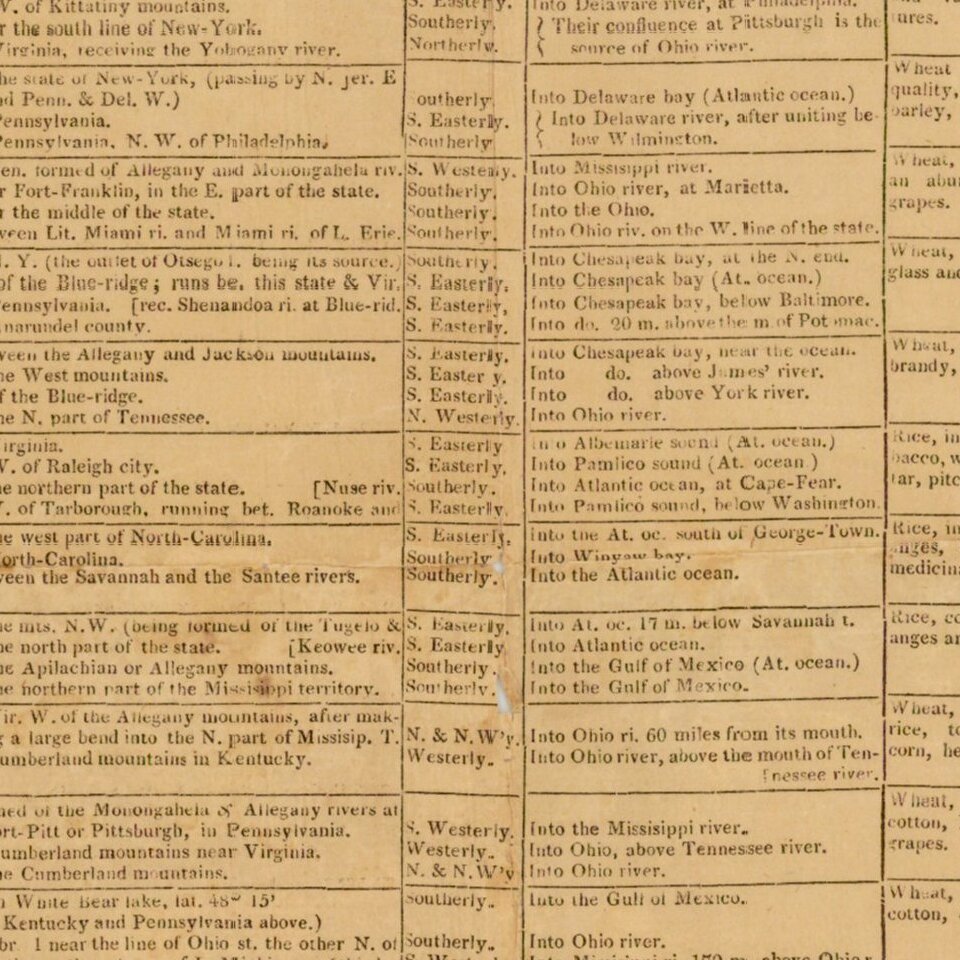 W. of Kittatiny mountains. S. Easterly Into Delaware river, at Philadelphia.
r the south line of New-York. Southerly. Their confluence at Pittsburgh is the ures.
Virginia, receiving the Yohogany river. Northerly. source of Ohio river.
he state of New-York, (passing by N. Jer. E Wheat
d Penn. & Del. W.) outherly. Into Delaware bay (Atlantic ocean.) quality,
Pennsylvania. S. Easterly. Into Delaware river, after uniting be- barley,
Pennsylvania, N. W. of Philadelphia. Southerly low Wilmington.
en. formed of Allegany and Monongahela riv. S. Westerly. Into Missisippi river. Wheat,
r Fort-Franklin, in the E. part of the state. Southerly. Into Ohio river, at Marietta. an abu
r the middle of the state. Southerly. Into the Ohio. grapes.
ween Lit. Miami ri. and Miami ri. of L. Erie. Southerly. Into Ohio riv. on the W. line of the state.
. Y. (the outlet of Otsego l. being its source.) Southerly. Into Chesapeak bay, at the N. end. Wheat,
of the Blue-ridge; runs be. this state & Vir. S. Easterly. Into Chesapeak bay (At. ocean.) glass and
Pennsylvania. [rec. Shenandoa ri. at Blue-rid. S. Easterly, Into Chesapeak bay, below Baltimore.
narundel county. S. Easterly. Into do. 20 m. above the m of Potomac.
ween the Allegany and Jackson mountains. S. Easterly. Into Chesapeak bay, near the ocean. Wheat,
he West mountains. S. Easter y. Into do. above James' river. brandy,
f the Blue-ridge. S. Easterly. Into do. above York river.
he N. part of Tennessee. N. Westerly. Into Ohio river.
irginia. S. Easterly Into Albemarle sound (At. ocean.) Rice, in
W. of Raleigh city. S. Easterly. Into Pamlico sound (At. ocean ) bacco, w
he northern part of the state. [Nuse riv. Southerly. Into Atlantic ocean, at Cape-Fear. tar, pitc
. of Tarborough, running bet. Roanoke and S. Easterly. Into Pamlico sound, below Washington.
he west part of North-Carolina. S. Easterly. Into the At. oc. south of George-Town. Rice, in
orth-Carolina. Southerly Into Winyow bay. anges,
ween the Savannah and the Santee rivers. Southerly. Into the Atlantic ocean. medicina
he mts. N.W. (being formed of the Tugelo & S. Easterly. Into At. oc. 17 m. below Savannah t. Rice, co
he north part of the state. [Keowee riv. S. Easterly Into Atlantic ocean. anges an
he Apilachian or Allegany mountains. Southerly. Into the Gulf of Mexico (At. ocean.)
he northern part of the Missisippi territory. Southerly. Into the Gulf of Mexico.
ir. W. of the Allegany mountains, after mak- Wheat,
g a large bend into the N. part of Missisip. T. N. & N.W'y. Into Ohio ri. 60 miles from its mouth. rice, to
umberland mountains in Kentucky. Westerly. Into Ohio river, above the mouth of Ten- corn, he
[nessee river.
ned of the Monongahela & Allegany rivers at Wheat,
ort-Pitt or Pittsburgh, in Pennsylvania. S. Westerly. Into the Missisippi river. cotton,
umberland mountains near Virginia. Westerly. Into Ohio, above Tennessee river. grapes.
he Cumberland mountains. N. & N.W'y Into Ohio river.
White Bear lake, lat. 48° 15' Southerly. Into the Gulf of Mexico. Wheat,
Kentucky and Pennsylvania above.) cotton,
br. 1 near the line of Ohio st. the other N. of Southerly. Into Ohio river.